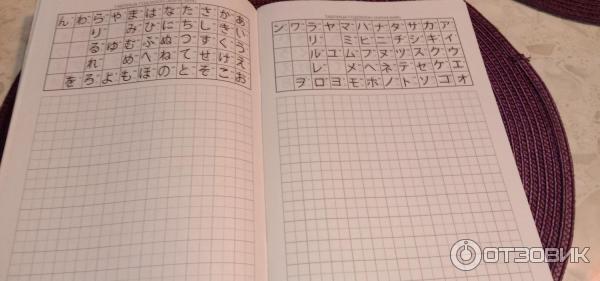 あいうえお
かきくけこ
さしすせそ
たちつてと
なにぬねの
はひふへほ
まみむめも
やゆよ
らりるれろ
わを
ん
アイウエオ
カキクケコ
サシスセソ
タチツテト
ナニヌネノ
ハヒフヘホ
マミムメモ
ヤユヨ
ラリルレロ
ワヲ
ン
ОТЗОВИК